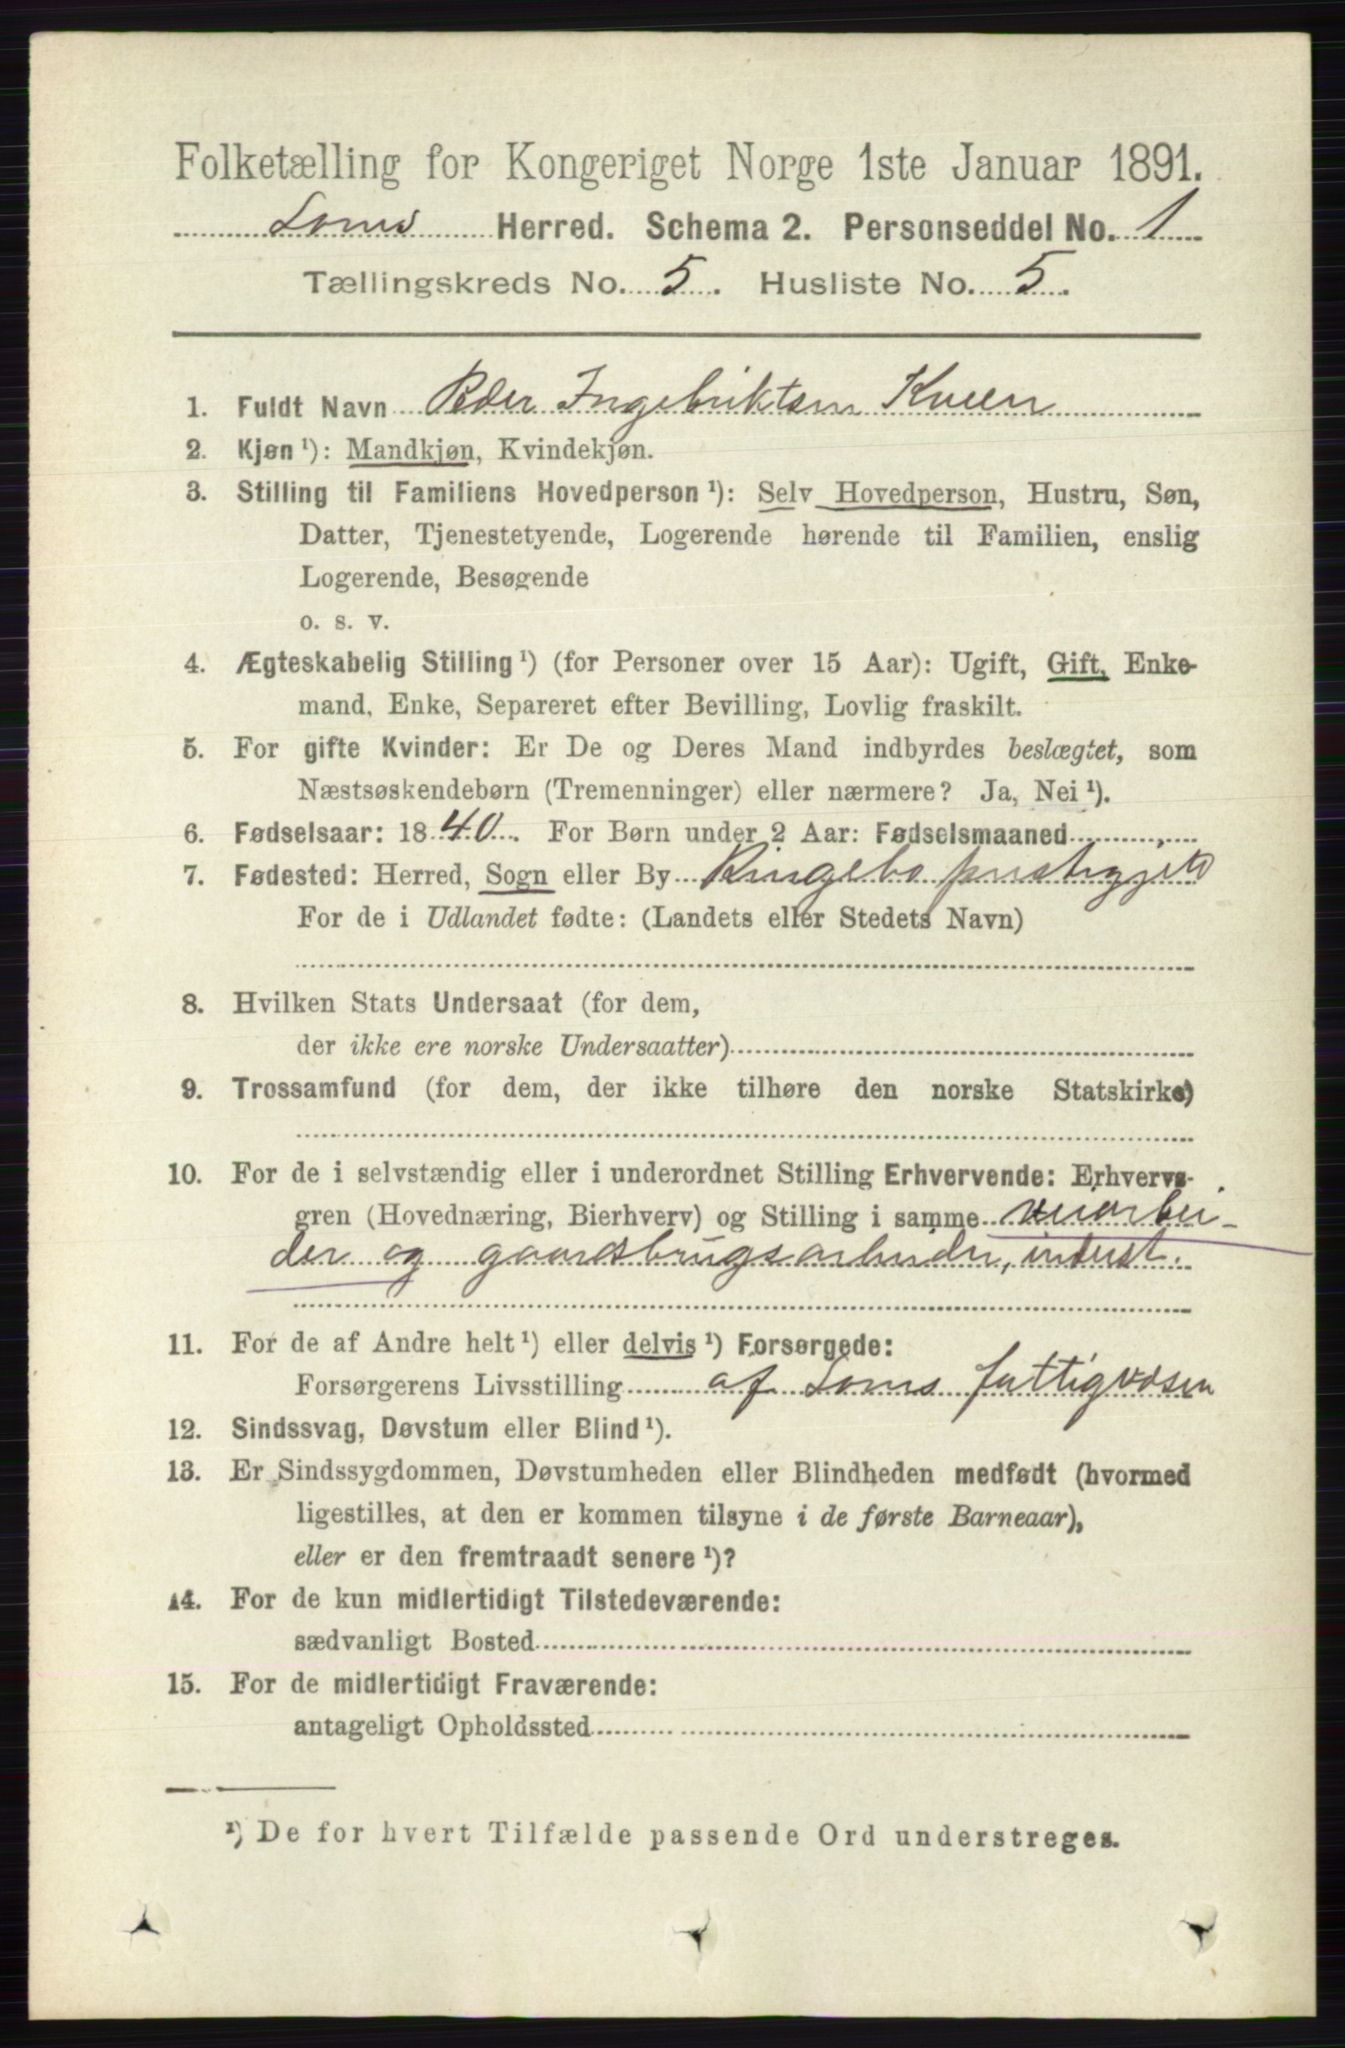 Folketælling for Kongeriget Norge 1ste Januar 1891.
Loms Herred. Schema 2. Personseddel No. 1
Tællingskreds No. 5. Husliste No. 5.
1. Fuldt Navn Peder Ingebriktsen Kveen
2. Kjøn ¹): Mandkjøn, Kvindekjøn.
3. Stilling til Familiens Hovedperson ¹): Selv Hovedperson, Hustru, Søn,
Datter, Tjenestetyende, Logerende hørende til Familien, enslig
Logerende, Besøgende
o. s. v.
4. Ægteskabelig Stilling ¹) (for Personer over 15 Aar): Ugift, Gift, Enke-
mand, Enke, Separeret efter Bevilling, Lovlig fraskilt.
5. For gifte Kvinder: Er De og Deres Mand indbyrdes beslægtet, som
Næstsøskendebørn (Tremenninger) eller nærmere? Ja, Nei ¹).
6. Fødselsaar: 1840. For Børn under 2 Aar: Fødselsmaaned
7. Fødested: Herred, Sogn eller By Ringebo prestegjeld
For de i Udlandet fødte: (Landets eller Stedets Navn)
8. Hvilken Stats Undersaat (for dem,
der ikke ere norske Undersaatter)
9. Trossamfund (for dem, der ikke tilhøre den norske Statskirke)
10. For de i selvstændig eller i underordnet Stilling Erhvervende: Erhvervs-
gren (Hovednæring, Bierhverv) og Stilling i samme veiarbei-
der og gaardsbrugsarbeider, inderst.
11. For de af Andre helt ¹) eller delvis ¹) Forsørgede:
Forsørgerens Livsstilling af Loms fattigvæsen
12. Sindssvag, Døvstum eller Blind ¹).
13. Er Sindssygdommen, Døvstumheden eller Blindheden medfødt (hvormed
ligestilles, at den er kommen tilsyne i de første Barneaar),
eller er den fremtraadt senere ¹)?
14. For de kun midlertidigt Tilstedeværende:
sædvanligt Bosted
15. For de midlertidigt Fraværende:
antageligt Opholdssted
¹) De for hvert Tilfælde passende Ord understreges.